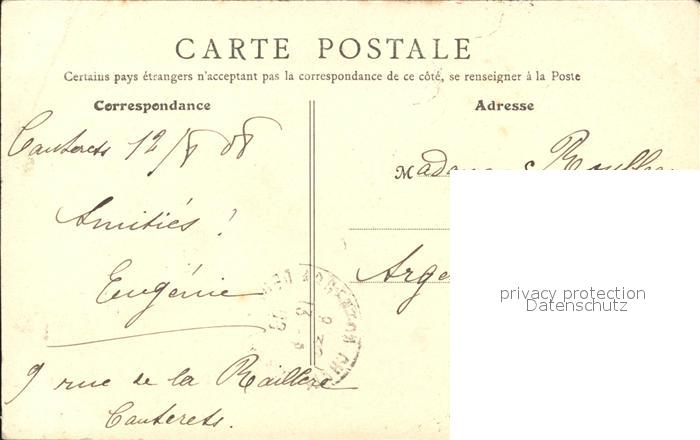 CARTE POSTALE
Certains pays étrangers n'acceptant pas la correspondance de ce côté, se renseigner à la Poste
Correspondance
Adresse
Cauterets 12/8 08
Madame
Amitiés !
Eugénie
9 rue de la Raillère
Cauterets.
privacy protection
Datenschutz